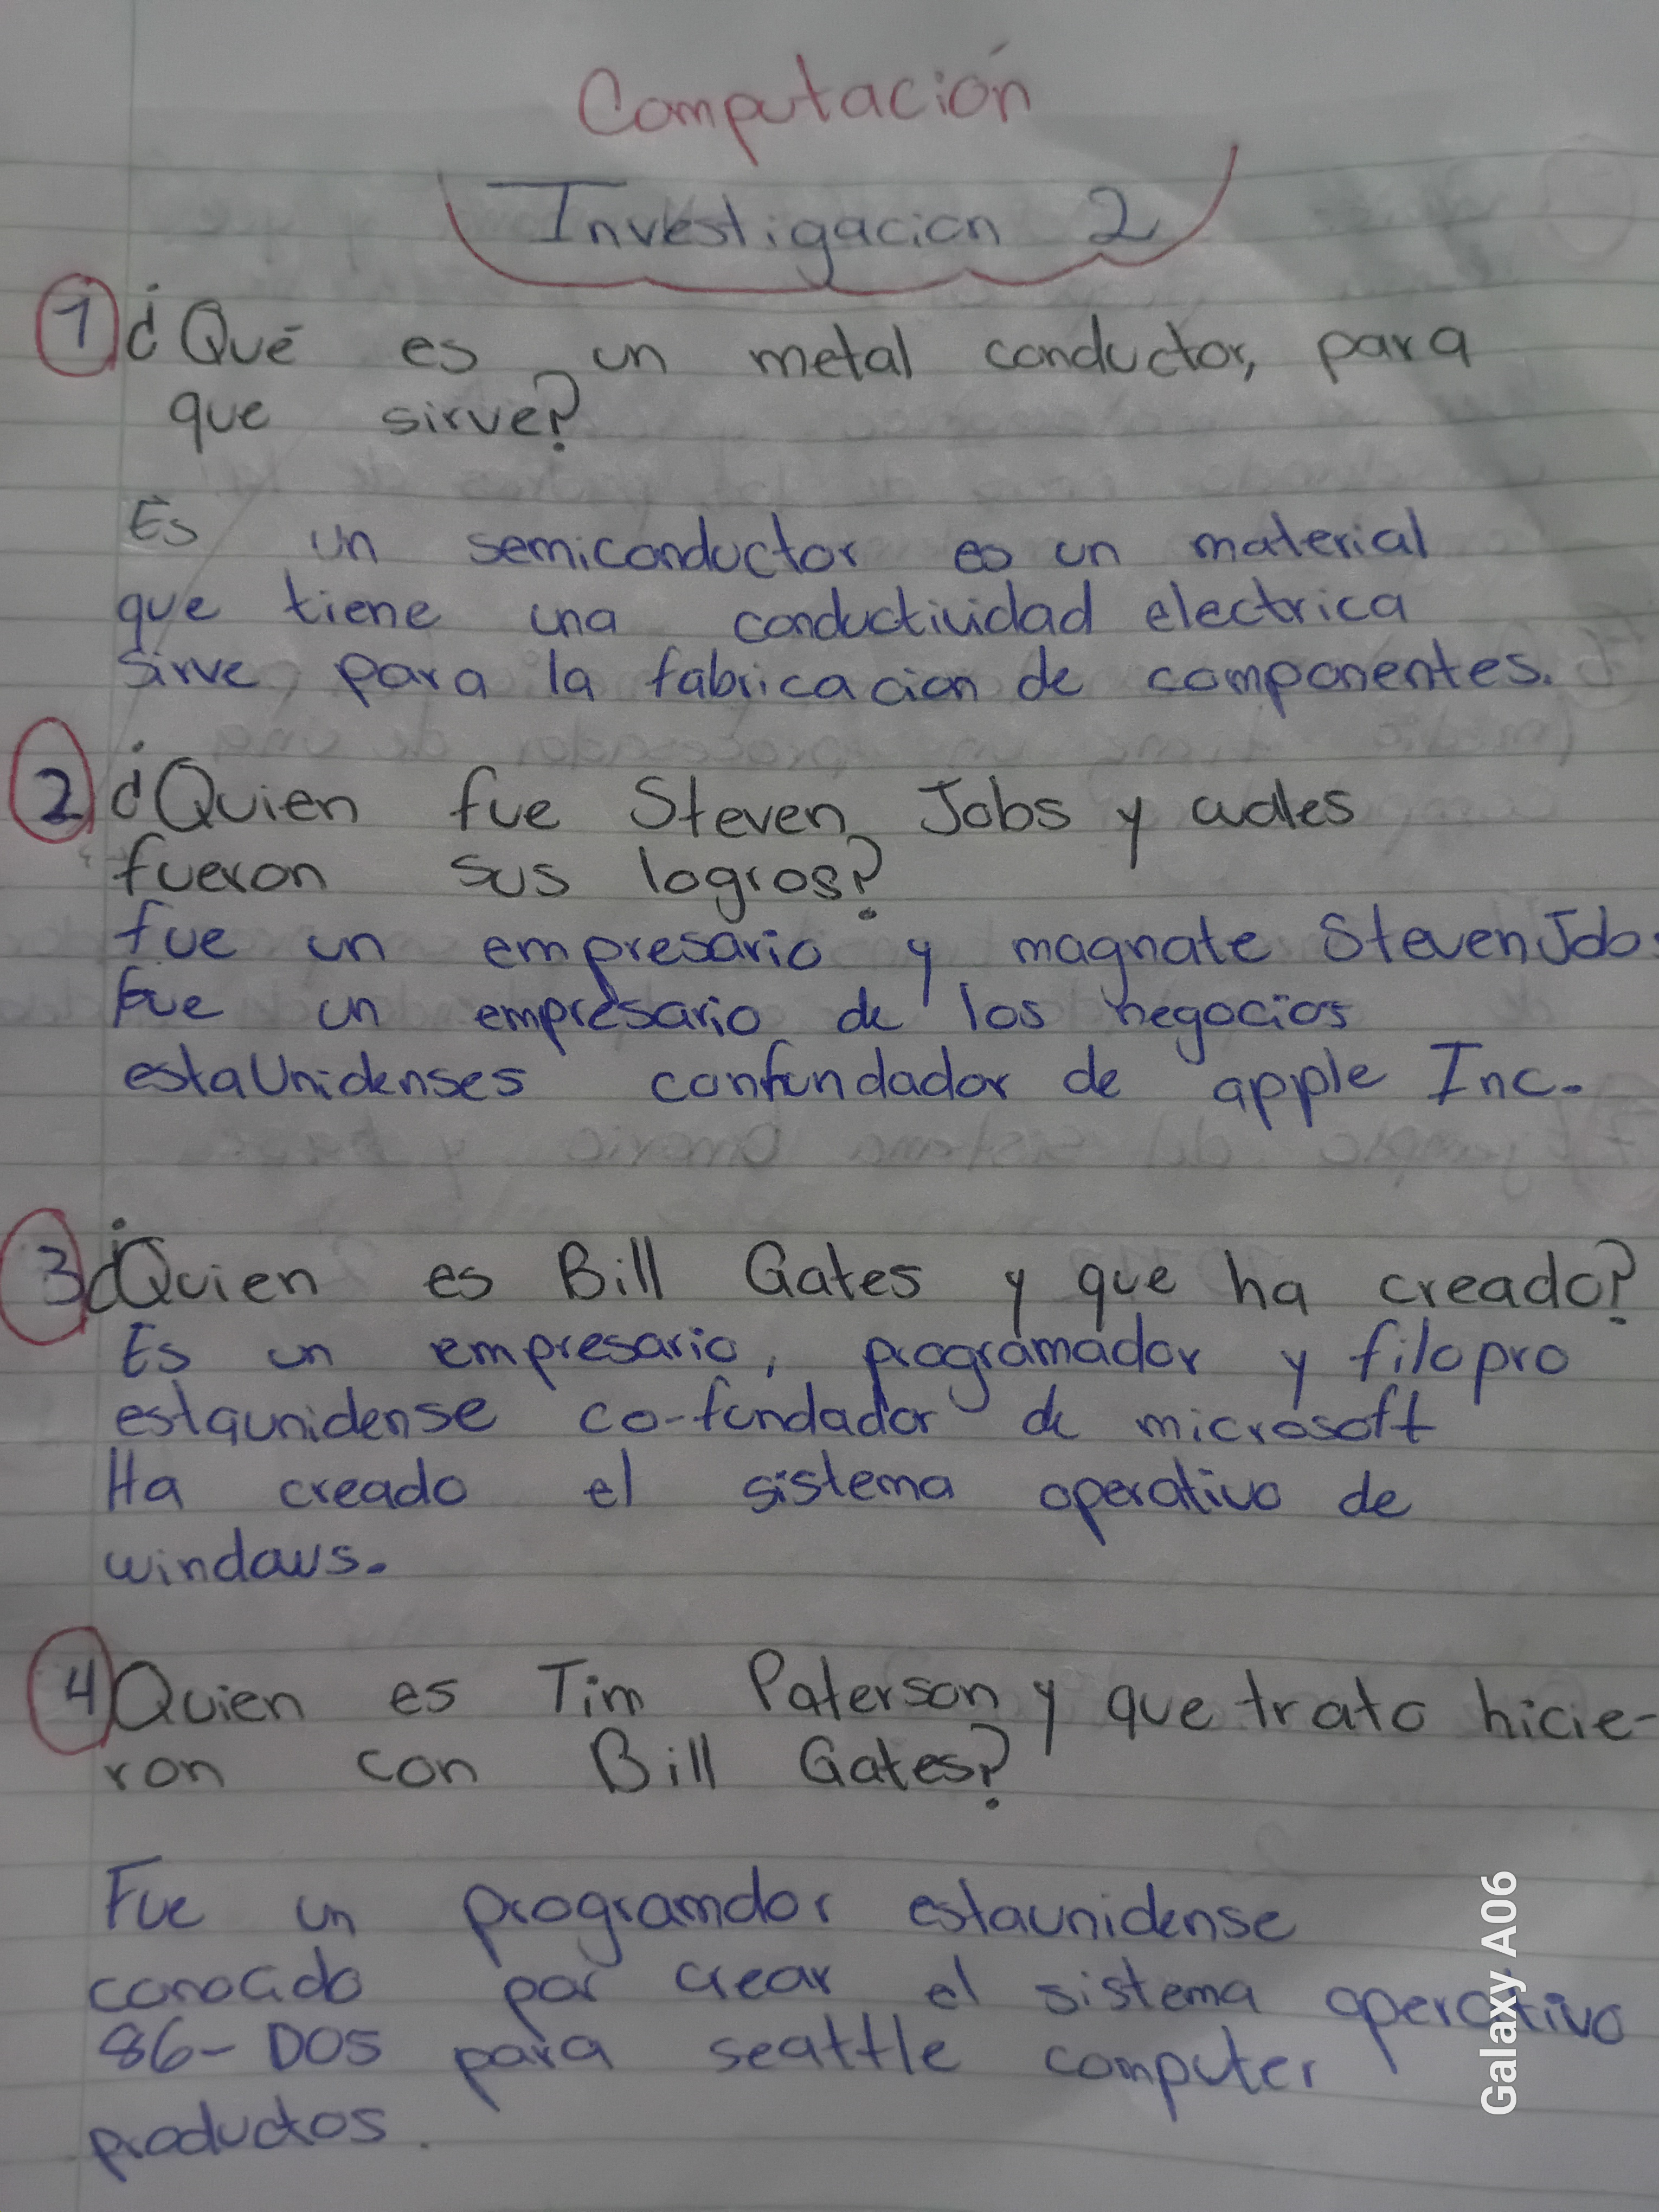 Computación
Investigacion 2
1 ¿Qué es un metal conductor, para
que sirve?
Es un semiconductor es un material
que tiene una conductividad electrica
sirve para la fabricacion de componentes.
2 ¿Quien fue Steven Jobs y cuales
fueron sus logros?
fue un empresario y magnate Steven Jobs
Fue un empresario de los negocios
estaUnidenses confundador de apple Inc.
3 ¿Quien es Bill Gates y que ha creado?
Es un empresario, programador y filopro
estaunidense co-fundador de microsoft
Ha creado el sistema operativo de
windows.
4 Quien es Tim Paterson y que trato hicie-
ron con Bill Gates?
Fue un programdor estaunidense
conocido por crear el sistema operativo
86-DOS para seattle computer
productos.
Galaxy A06